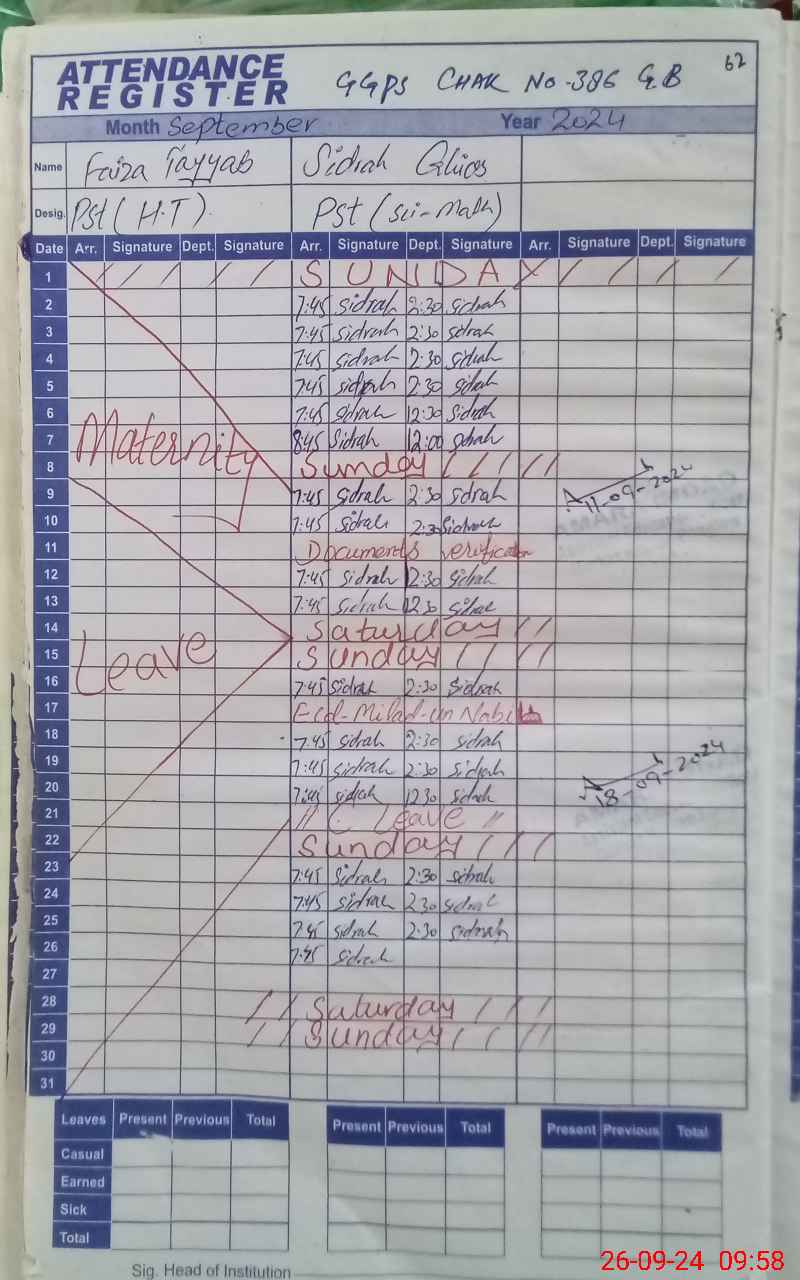 62
ATTENDANCE REGISTER GGPS CHAK No-386 GB
Month September Year 2024
Name Faiza Tayyab Sidrah
Desig. Pst (H.T). Pst (sci-Math)
Date Arr. Signature Dept. Signature Arr. Signature Dept. Signature Arr. Signature Dept. Signature
1 SUNDAY
2 7:45 Sidrah 2:30 Sidrah
3 7:45 Sidrah 2:30 Sidrah
4 7:45 Sidrah 2:30 Sidrah
5 7:45 Sidrah 2:30 Sidrah
6 7:45 Sidrah 12:30 Sidrah
7 Maternity 8:45 Sidrah 12:00 Sdrah
8 Sunday
9 7:45 Sidrah 2:30 Sdrah 11-09-2024
10 7:45 Sidrah 2:30 Sidrah
11 Documents verification
12 7:45 Sidrah 12:30 Sidrah
13 7:45 Sidrah 12:30 Sidrah
14 Saturday
15 Leave Sunday
16 7:45 Sidrah 2:30 Sidrah
17 Eid-Milad-un Nabi
18 7:45 Sidrah 2:30 Sidrah
19 7:45 Sidrah 2:30 Sidrah 18-09-2024
20 7:45 Sidrah 12:30 Sidrah
21 C Leave
22 Sunday
23 7:45 Sidrah 2:30 Sidrah
24 7:45 Sidrah 2:30 Sidrah
25 7:45 Sidrah 2:30 Sidrah
26 7:45 Sidrah
27
28 Saturday
29 Sunday
30
31
Leaves Present Previous Total Present Previous Total Present Previous Total
Casual
Earned
Sick
Total
Sig. Head of Institution
26-09-24 09:58